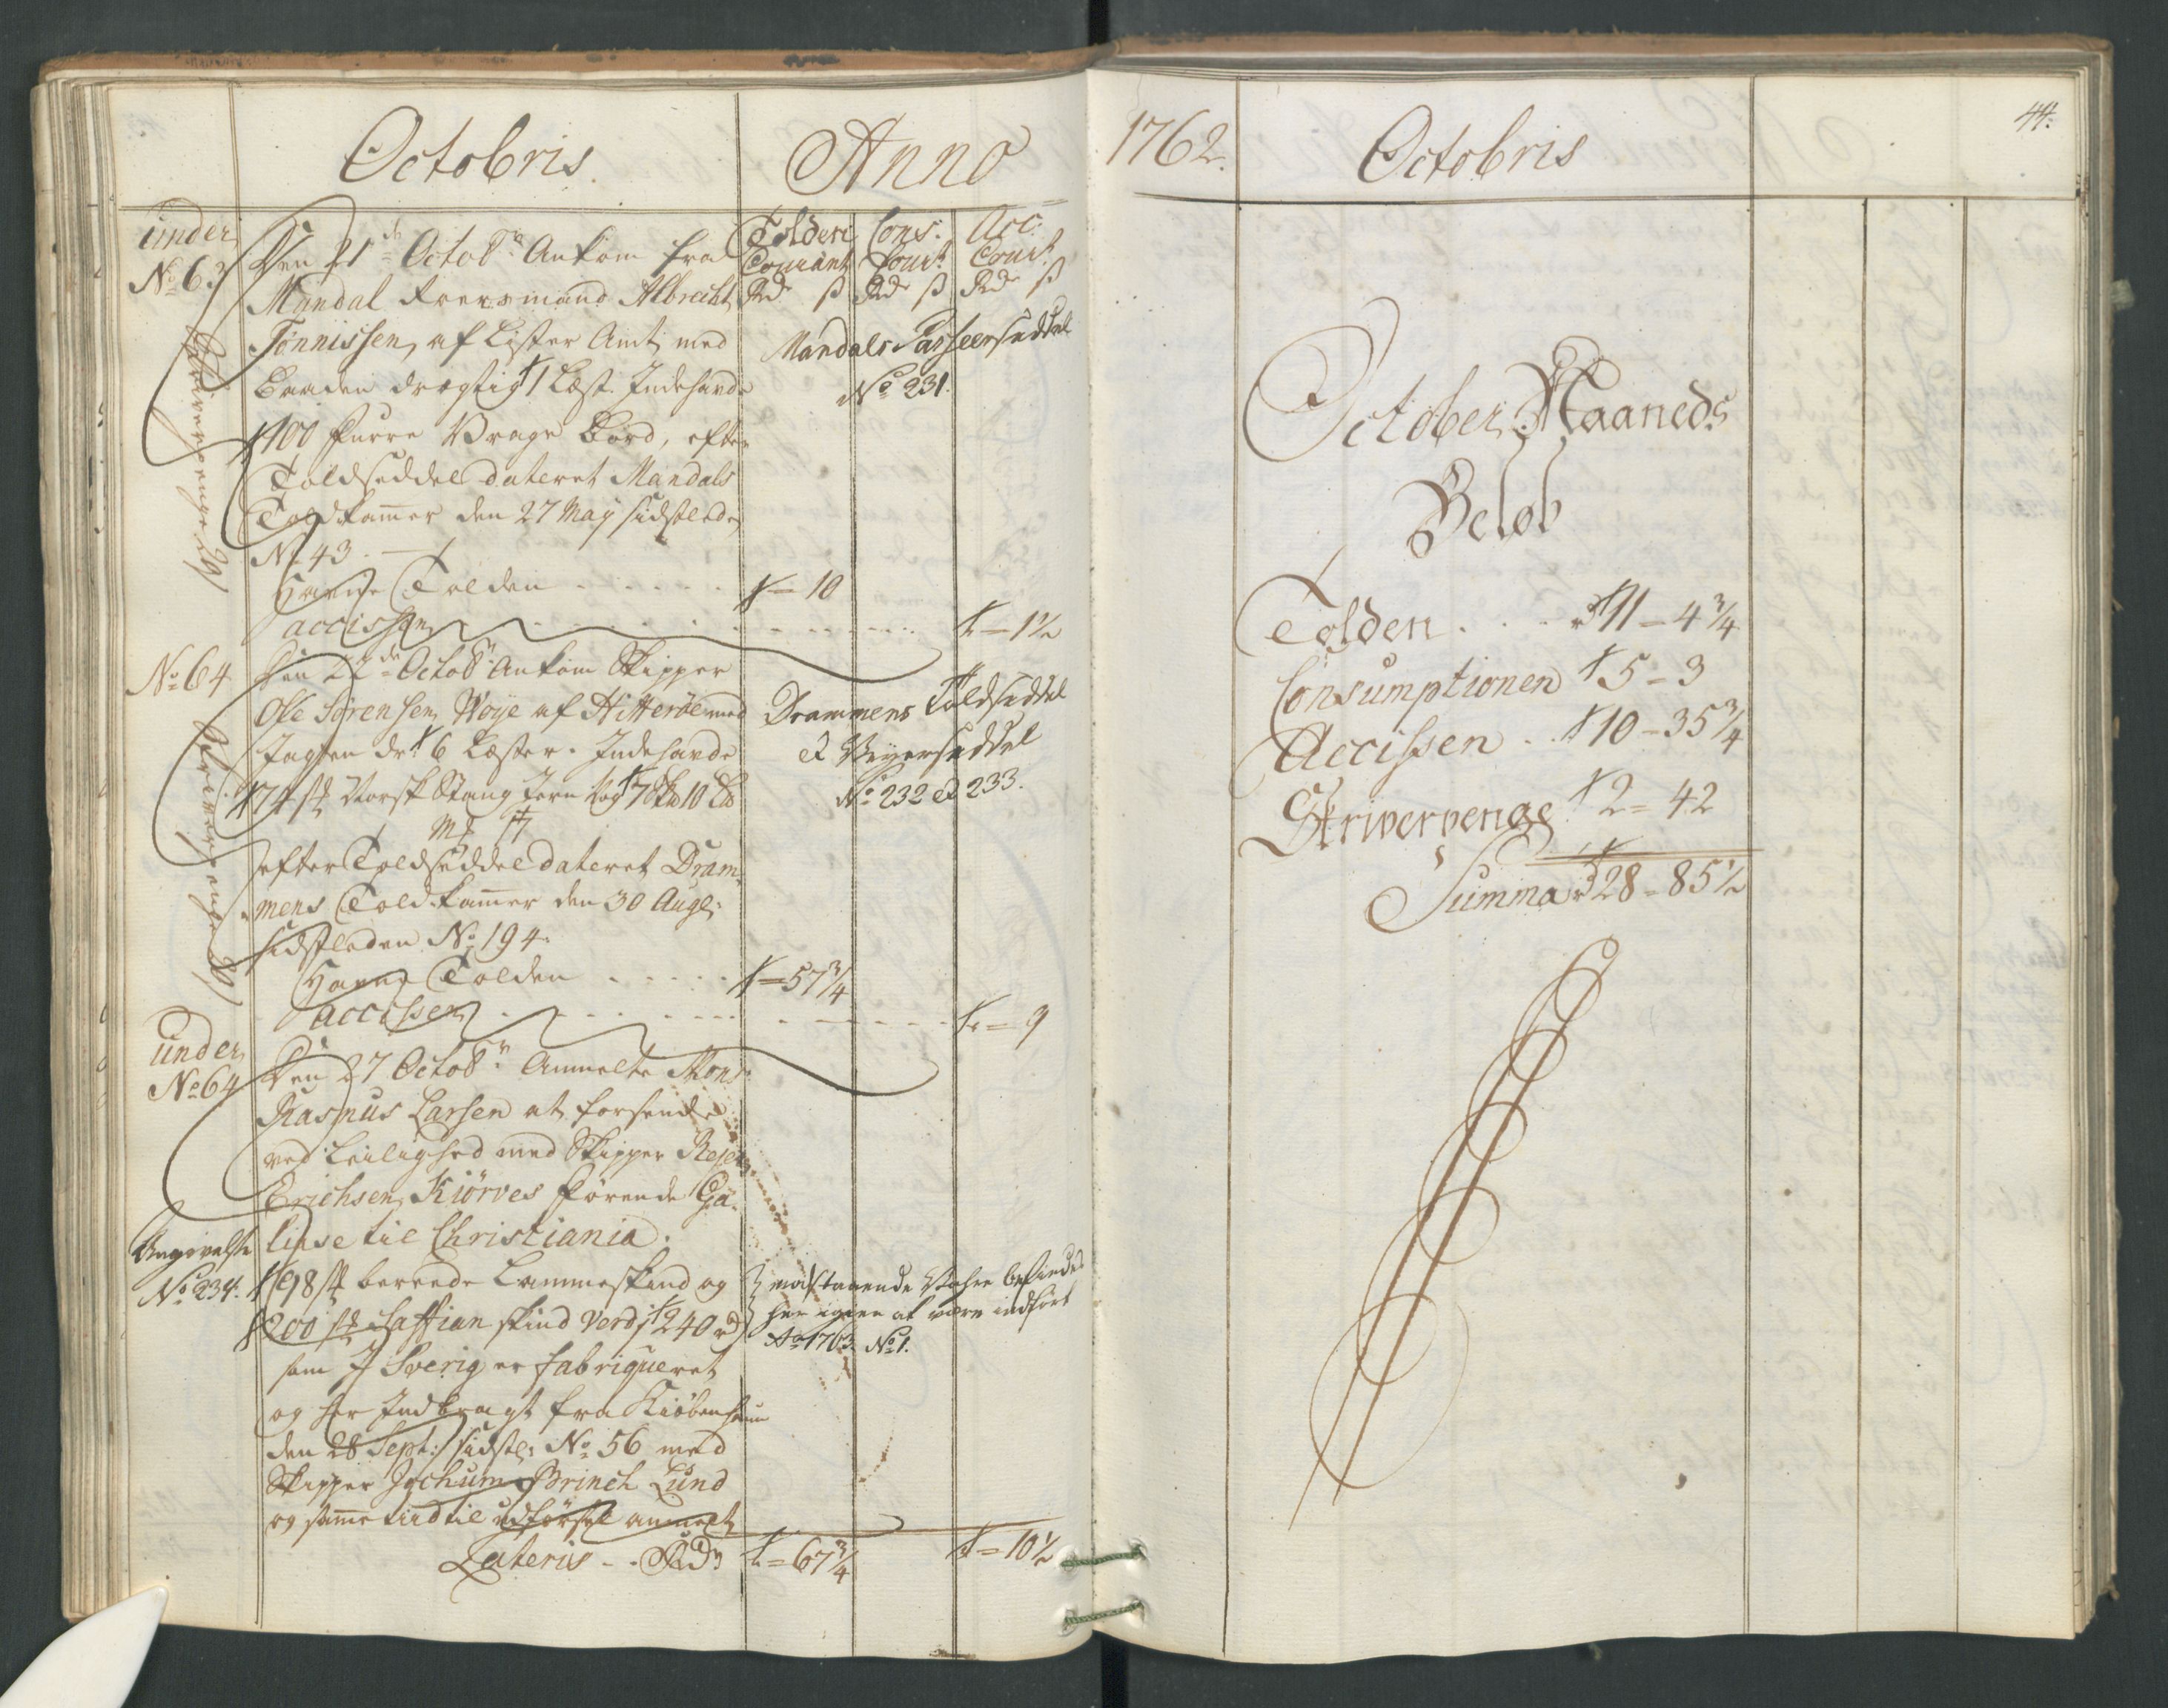 Octobris. Anno
under
No 63
Den 21de Octobr Ankom fra
Mandal Foersmand Albrecht
Tönnissen, af Lister Amt med
Baaden drægtig 1 Læst. Indehavde
100 furre Vrage Bord, efter
Toldseddel dateret Mandals
Toldkamer den 27 May sidstleden
No 43.
Tolden
Courant
Rd ß
Cons.
Court
Rd ß
Acc.
Court
Rd ß
Mandals Passeerseddel
No 231.
Skriverpenge
Tolden . . . . . 10
Accissen . . . . . 1½
No 64
Den 22de Octobr Ankom Skipper
Ole Sörensen Woye af Hitteröe med
Jagten dr. 6 Læster. Indehavde
74 st Norsk Stang Jern
efter Toldseddel dateret Dram-
mens Toldkamer den 30 Aug:
sidstleden No 194.
Drammens Toldseddel
et Veyerseddel
No 232 et 233.
Skriverpenge
Tolden . . . . . 57¾
Accissen . . . . . 9
under
No 64
Den 27 Octobr Anmelte Mons
Rasmus Larsen at forsende
ved Leilighed med Skipper
Erichsen Kiörves förende Ga-
liase til Christiania.
Angivelse
No 234.
98 st bereede Lammeskind og
200 st Saffian skind Verdj 240 rd
som J Sverig er fabriqueret
og her Indbragt fra Kiöbenhaun
den 28 Sept: sidstl: No 56 med
Skipper Jochum Brinch Lund
og samme tid til udförsel anmelt
modstaaende Vahre befindes
her igien at være indfört
Ao 1763 No 1.
Lateris - . Rdr = 67¾ = 10½
1762. Octobris 44.
October Maaneds
Beløb
Tolden . . . 11 - 4¾
Consumptionen 5 - 3
Accissen . . 10 - 35¾
Skriverpenge 2 = 42
Summa 28 = 85½